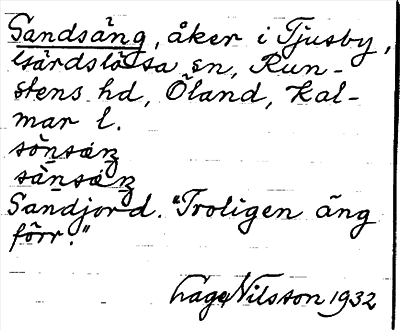 Sandsäng, åker i Tjusby,
Gärdslösa sn, Run-
stens hd, Öland, Kal-
mar l.
sònsæŋ
sànsæŋ
Sandjord. "Troligen äng
förr."
Åage Nilsson 1932